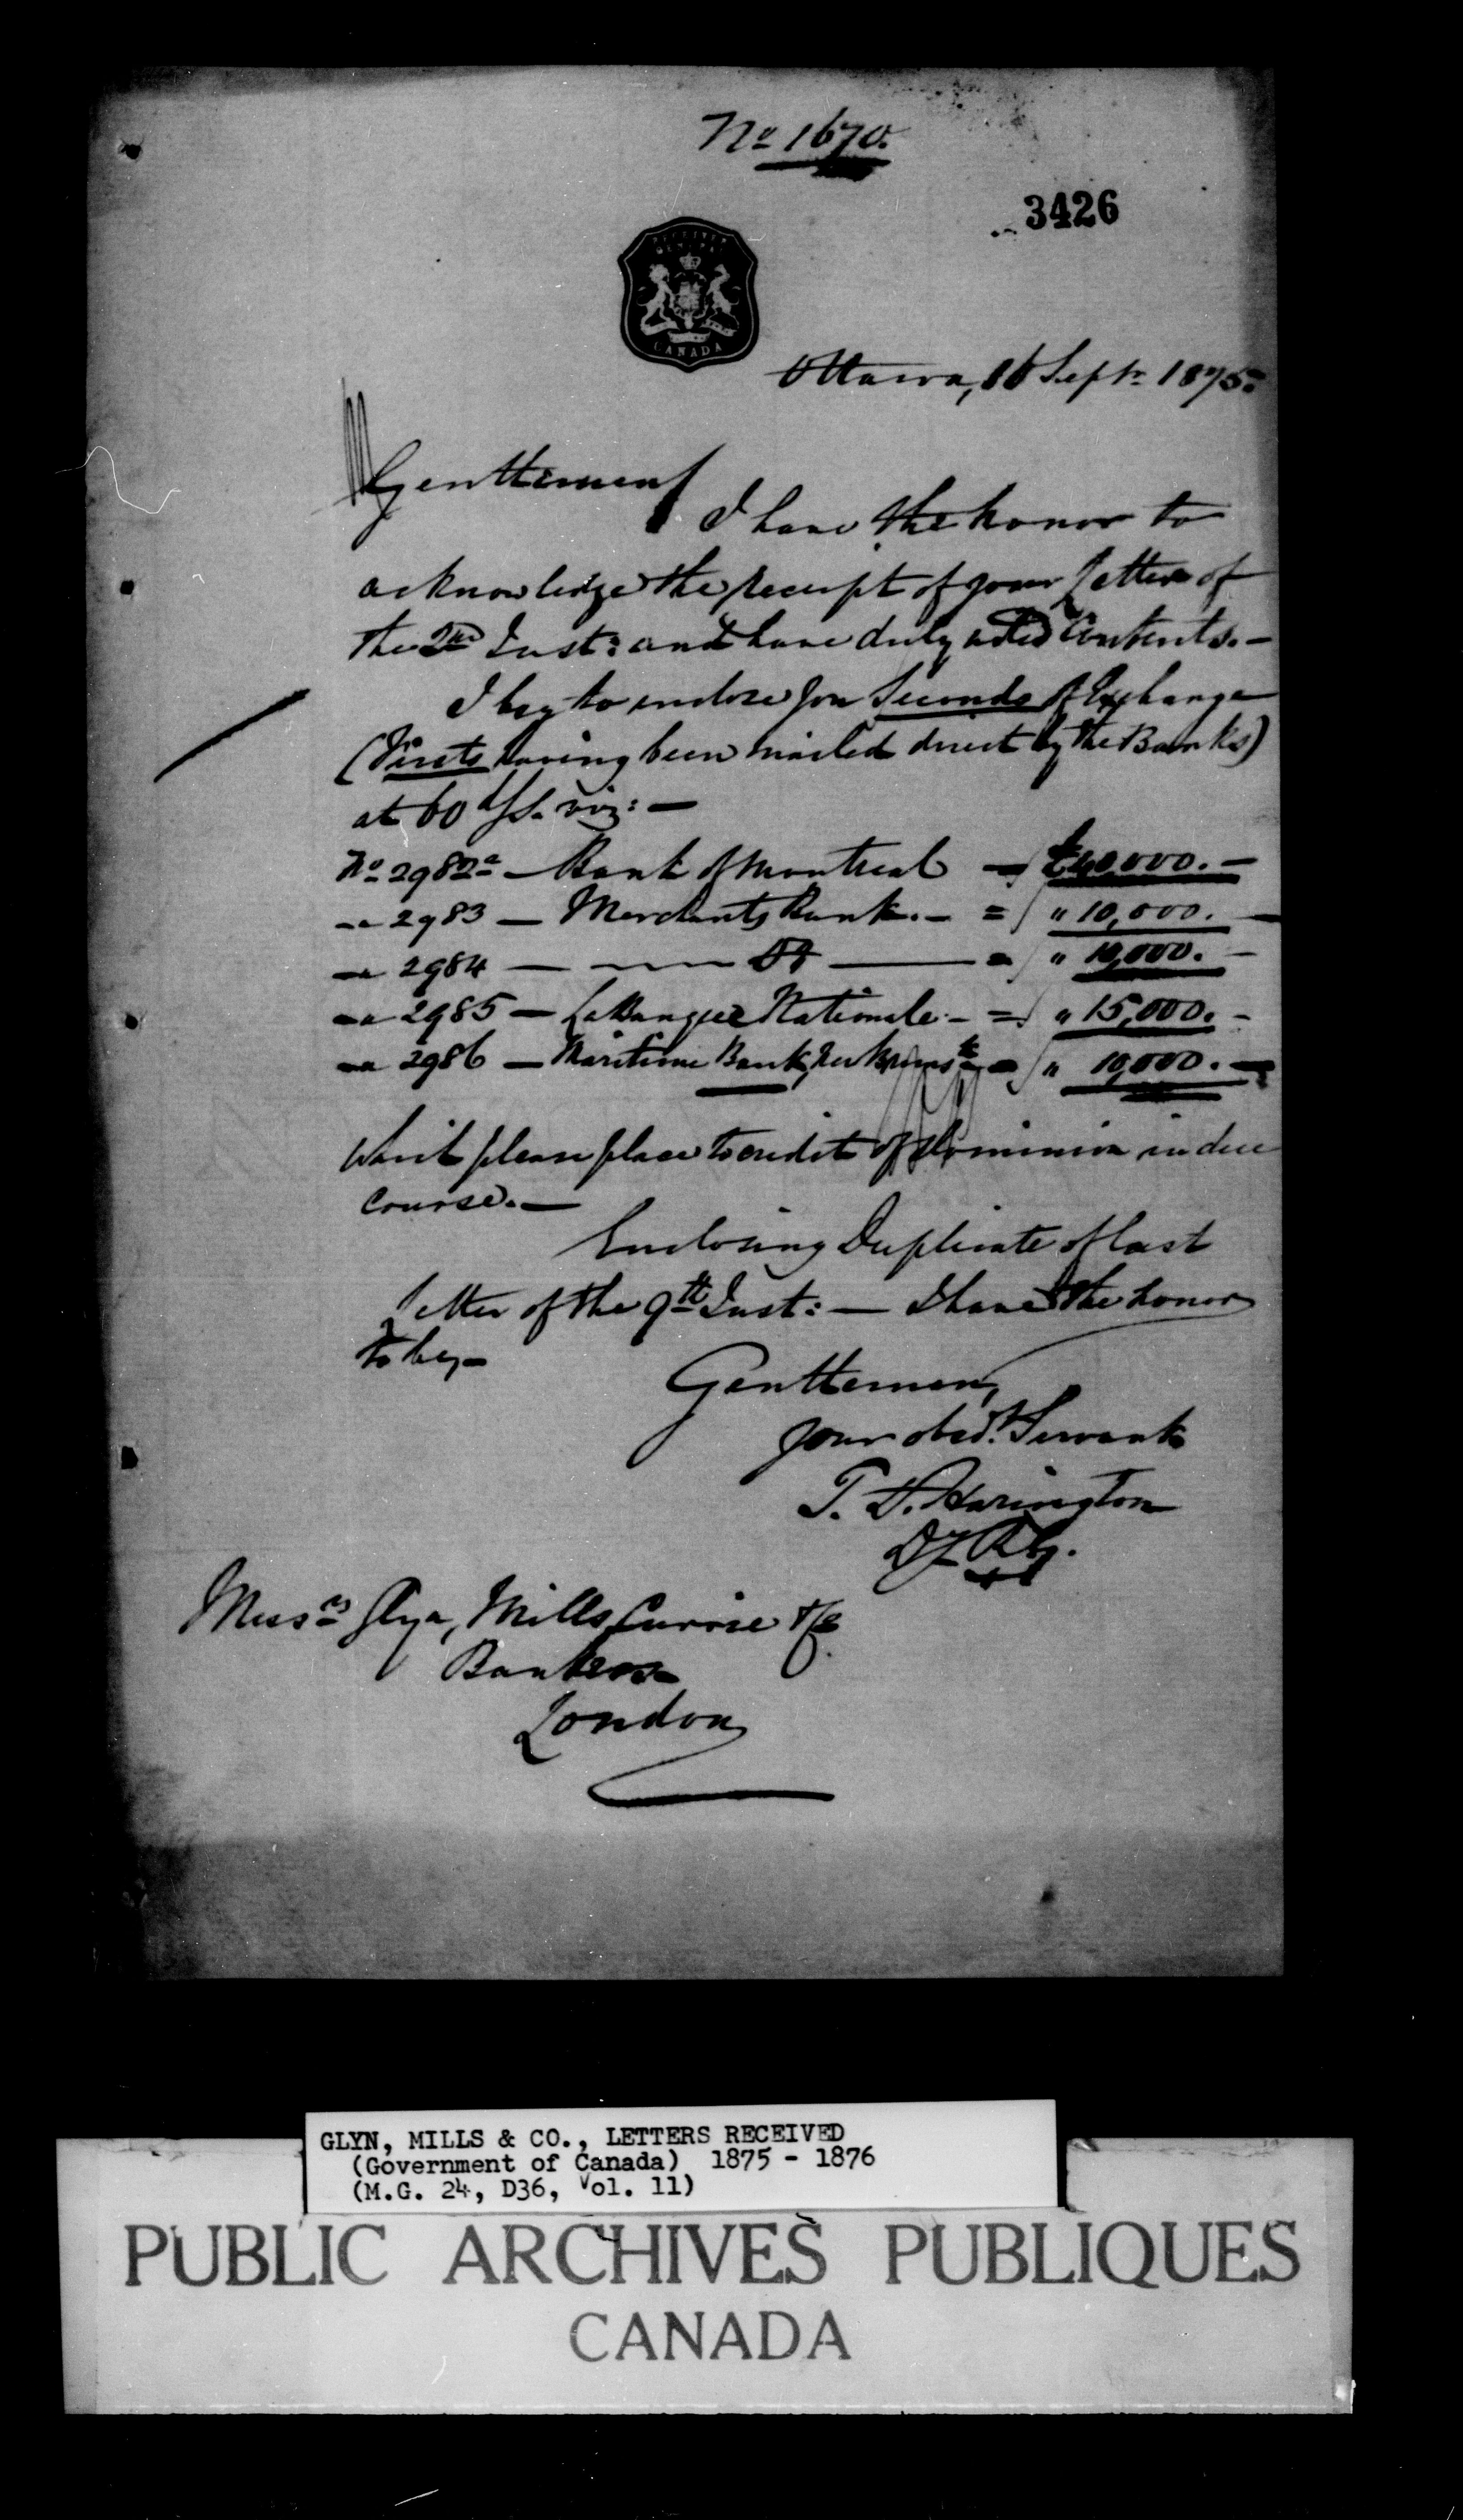 No 1670.
3426
RECEIVER
GENERAL
CANADA
Ottawa, 16 Septr 1875.
Gentlemen
I have the honor to
acknowledge the receipt of your letter of
the 2nd Inst: and have duly noted Contents.—
I beg to enclose you Seconds of Exchange
(Firsts having been mailed direct by the Banks)
at 60 d/s. viz:—
No 2982 — Bank of Montreal — £40,000.—
" 2983 — Merchants Bank.— = " 10,000.—
" 2984 — Do — = " 10,000.—
" 2985 — La Banque Nationale.— = " 15,000.—
" 2986 — Maritime Bank, New Brunsk — = " 10,000.—
which please place to credit of Dominion in due
course.—
Enclosing Duplicate of last
letter of the 9th Inst:— I have the honor
to be,—
Gentlemen,
your obedt. Servant
T. D. Harington
D R G.
Messrs Glyn, Mills, Currie & Co.
Bankers
London
GLYN, MILLS & CO., LETTERS RECEIVED
(Government of Canada) 1875 - 1876
(M.G. 24, D36, Vol. 11)
PUBLIC ARCHIVES PUBLIQUES
CANADA